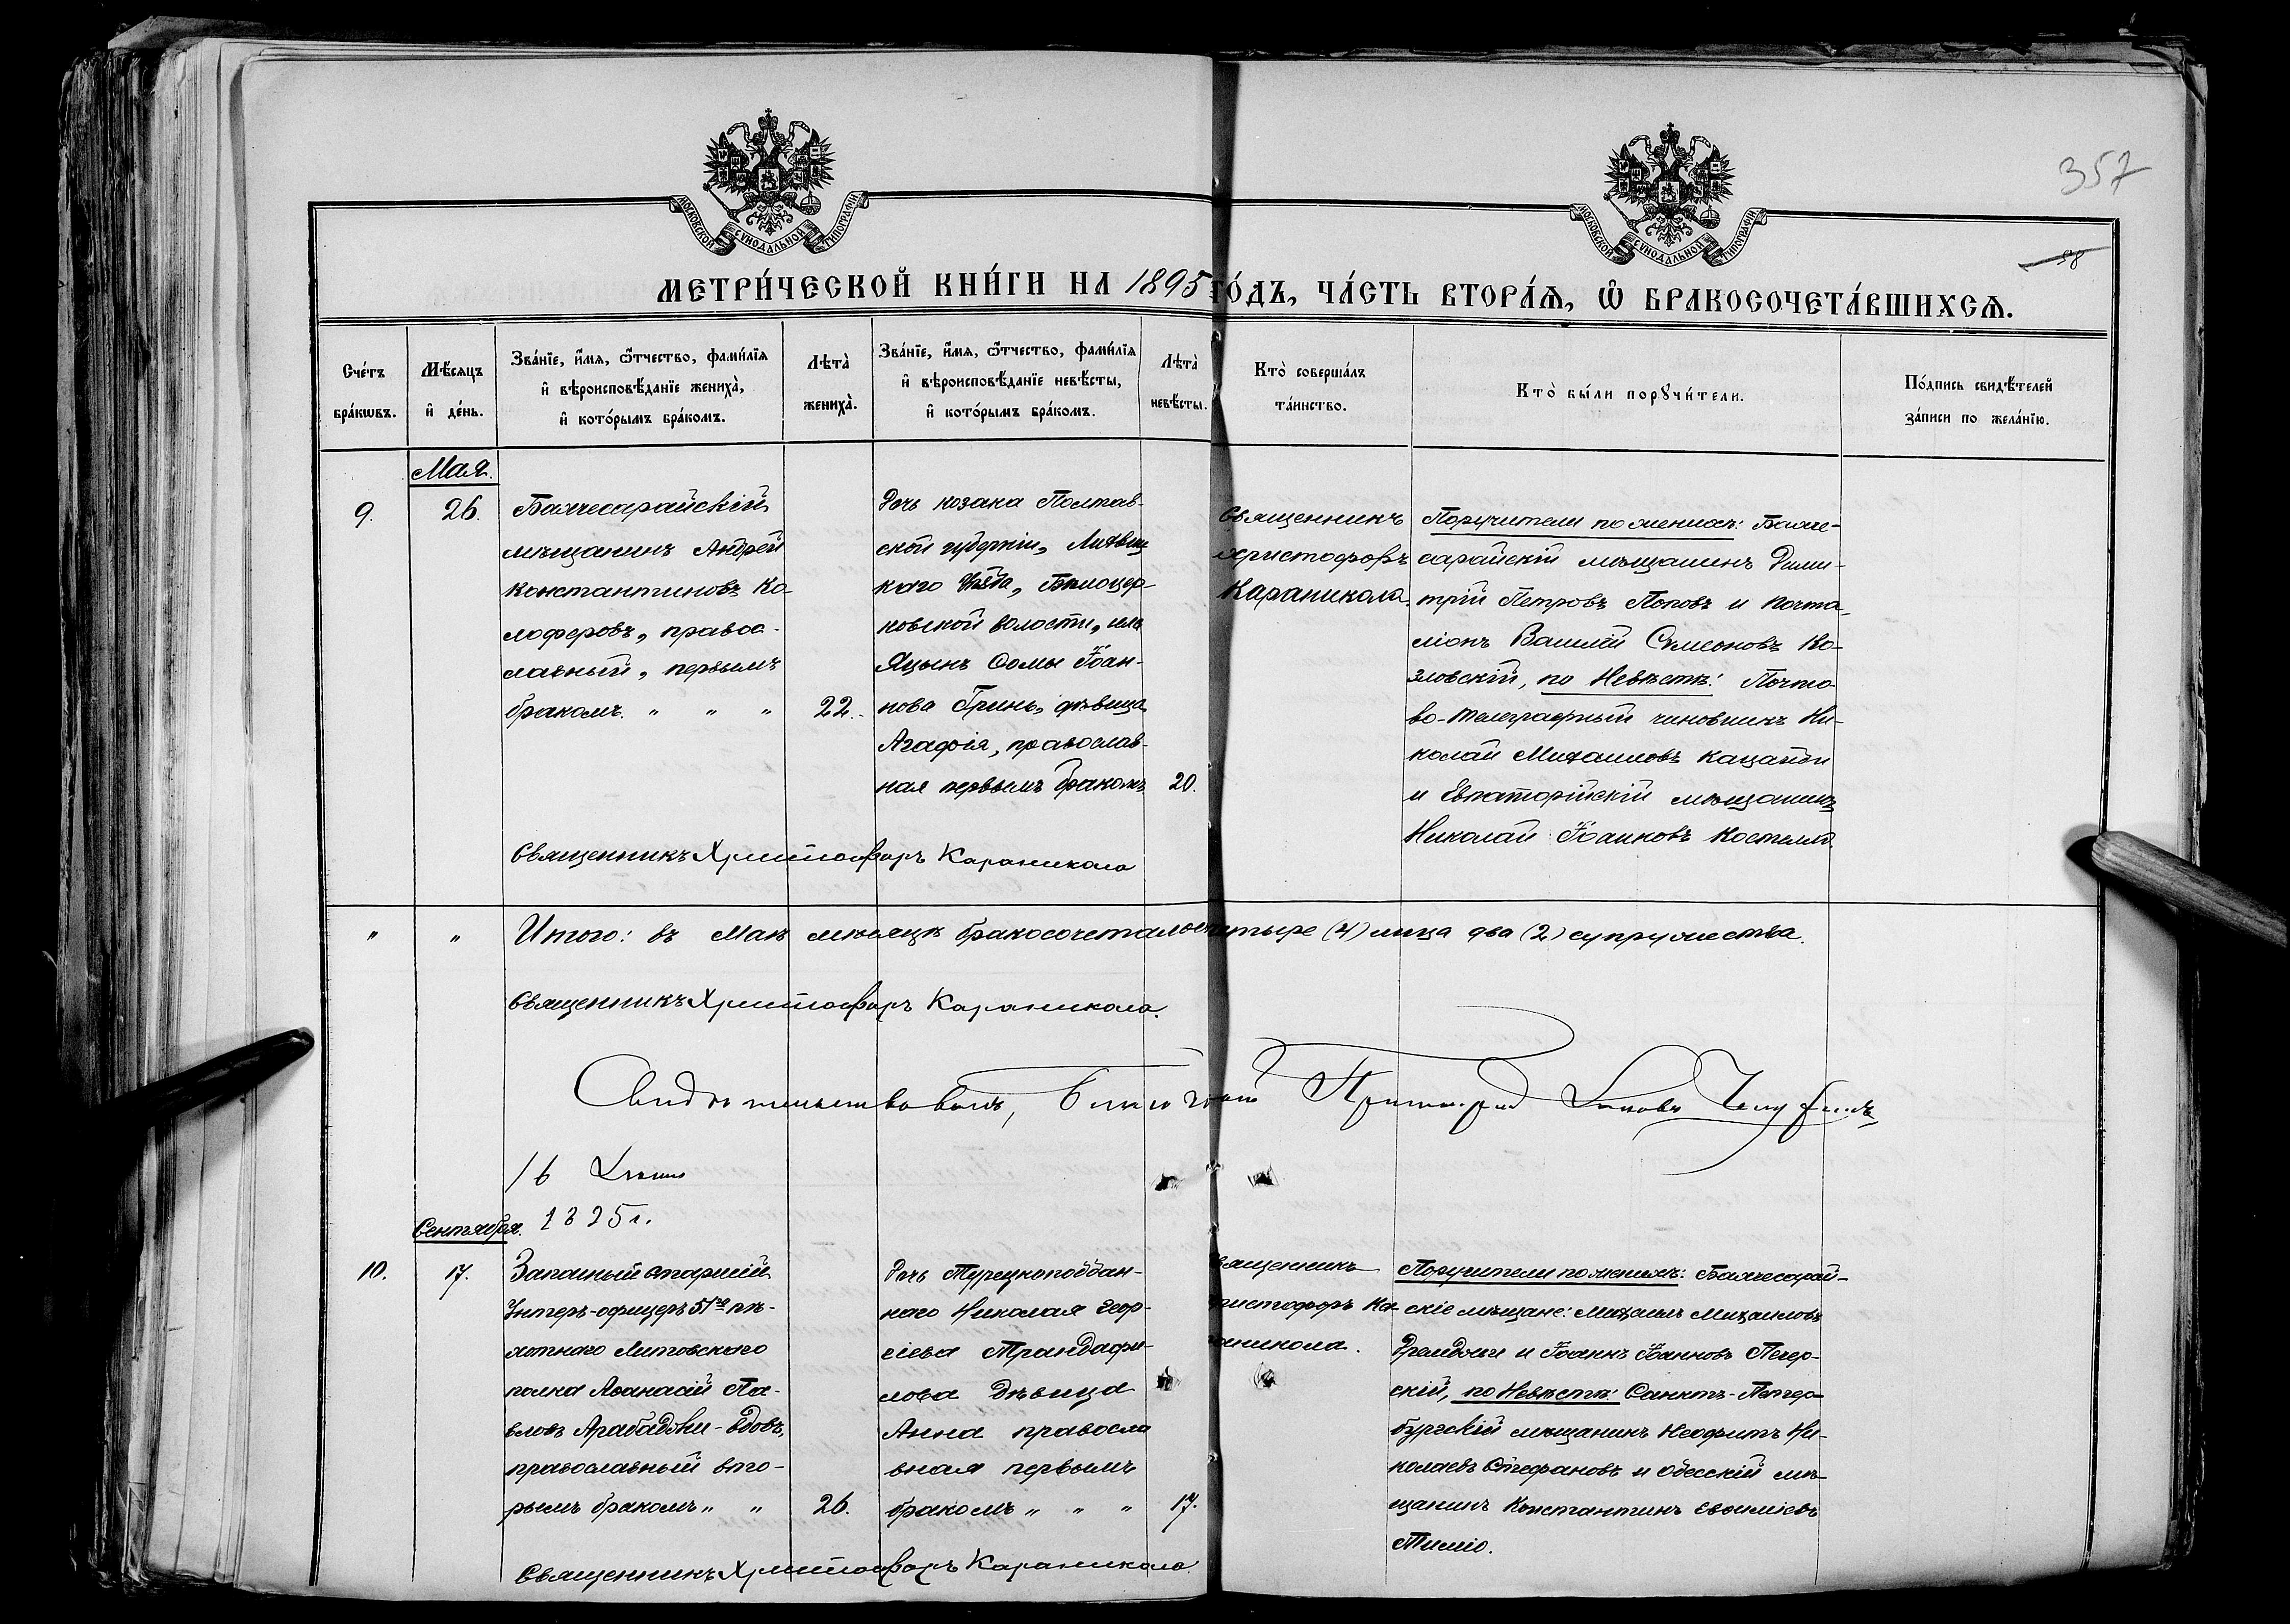 357
МОСКОВСКОЙ СУНОДАЛЬНОЙ ТИПОГРАФІИ
МОСКОВСКОЙ СУНОДАЛЬНОЙ ТИПОГРАФІИ
58
МЕТРИ́ЧЕСКОЙ КНИ́ГИ НА 1895 ГО́ДЪ, ЧА́СТЬ ВТОРА́Ѧ, Ѡ҆ БРАКОСОЧЕТА́ВШИХСѦ.
Сче́тъ
бра́кѡвъ.
Мѣ́сяцъ
и҆ де́нь.
Зва́нїе, и҆́мя, ѻ҆́тчество, фами́лїя
и҆ вѣроисповѣ́данїе женихà,
и҆ кото́рымъ бра́комъ.
Лѣтà
женихà.
Зва́нїе, и҆́мя, ѻ҆́тчество, фами́лїя
и҆ вѣроисповѣ́данїе невѣ́сты,
и҆ кото́рымъ бра́комъ.
Лѣтà
невѣ́сты.
Ктò соверша́лъ
та́инство.
Ктò бы́ли порꙋчи́тели.
По́дпись свидѣ́телей
за́писи по жела́нїю.
Мая.
9.
26.
Бахчесарайскій
мѣщанинъ Андрей
Константиновъ Ка-
лоферовъ, правос-
лавный, первымъ
бракомъ. " " "
22.
Дочь козака Полтав-
ской губерніи, Лохвиц-
каго уѣзда, Бѣлоцер-
ковской волости, села
Яцынъ Ѳомы Іоан-
нова Гринь, дѣвица
Агафія, православ-
ная первымъ бракомъ
20.
Священникъ
Христофоръ
Караникола.
Поручители по женихѣ: Бахче-
сарайскій мѣщанинъ Дими-
трій Петровъ Поповъ и почта-
ліонъ Василій Симеоновъ Ко-
зловскій, по Невѣстѣ: Почто-
во-телеграфный чиновникъ Ни-
колай Михаиловъ
и Евпаторійскій мѣщанинъ
Николай Іоанновъ
Священникъ Христофоръ Караникола
" "
Итого: въ Маѣ мѣсяцѣ бракосочеталось четыре (4) лица два (2) супружества.
Священникъ Христофоръ Караникола.
Свидѣтельствовалъ, Благочинный Протоіерей
16
1895 г.
Сентября.
10.
17.
Запасный старшій
Унтеръ-офицеръ 51го пѣ-
хотнаго Литовскаго
полка Аѳанасій Па-
вловъ Арабаджи-вдовъ,
православный вто-
рымъ бракомъ " "
26.
Дочь Турецкоподдан-
наго Николая Геор-
гіева Трандафи-
лова дѣвица
Анна правосла
вная первымъ
бракомъ " " "
17.
вященникъ
ристофоръ Ка-
аникола.
Поручители по женихѣ: Бахчесарай-
скіе мѣщане: Михаилъ Михаиловъ
и Іоаннъ Іоанновъ Печер-
скій, по Невѣстѣ: Санктъ-Петер-
бургскій мѣщанинъ Неофитъ Ни-
колаевъ Стефановъ и Одесскій мѣ-
щанинъ Константинъ Евѳиміевъ
Священникъ Христофоръ Караникола.